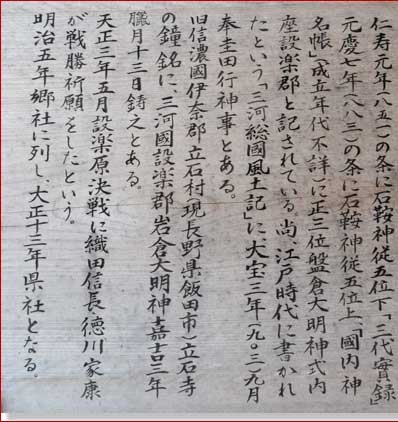 仁寿元年(八五一)の条に石鞍神従五位下「三代實録」
元慶七年(八八三)の条に石鞍神従五位上「國内神
名帳」(成立年代不詳)に正三位盤倉大明神式内
座設楽郡と記されている。尚、江戸時代に書かれ
たという。「三河総國風土記」に大宝三年(九〇三)九月
奉圭田行神事とある。
旧信濃國伊奈郡立石村(現長野県飯田市)立石寺
の鐘銘に、三河國設楽郡岩倉大明神嘉吉三年
臘月十三日鋳之とある。
天正三年五月設楽原決戦に織田信長徳川家康
が戦勝祈願をしたという。
明治五年郷社に列し、大正十三年県社となる。